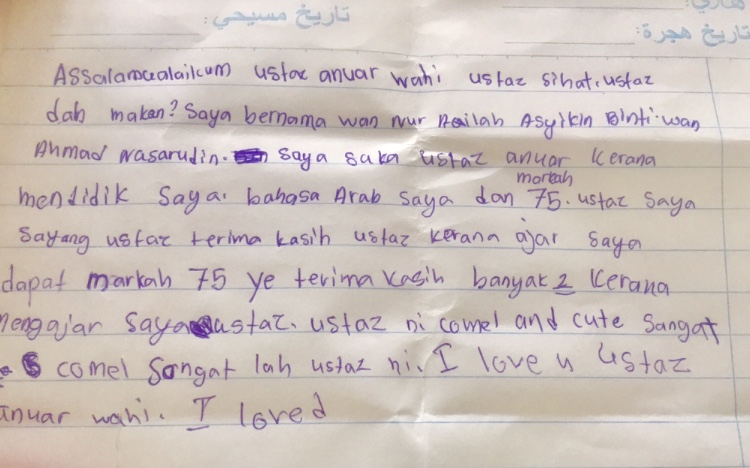 تاريخ مسيحي:
تاريخ هجرة:
Assalamualaikum ustaz anuar wahi ustaz sihat. ustaz
dah makan? Saya bernama wan nur Asyikin Binti wan
Ahmad nasarudin. saya suka ustaz anuar kerana
mendidik saya. bahasa Arab saya dan markah 75. ustaz saya
sayang ustaz terima kasih ustaz kerana ajar saya
dapat markah 75 ye terima kasih banyak 2 kerana
mengajar saya ustaz. ustaz ni comel and cute sangat
comel sangat lah ustaz ni. I love u ustaz
anuar wahi. I loved